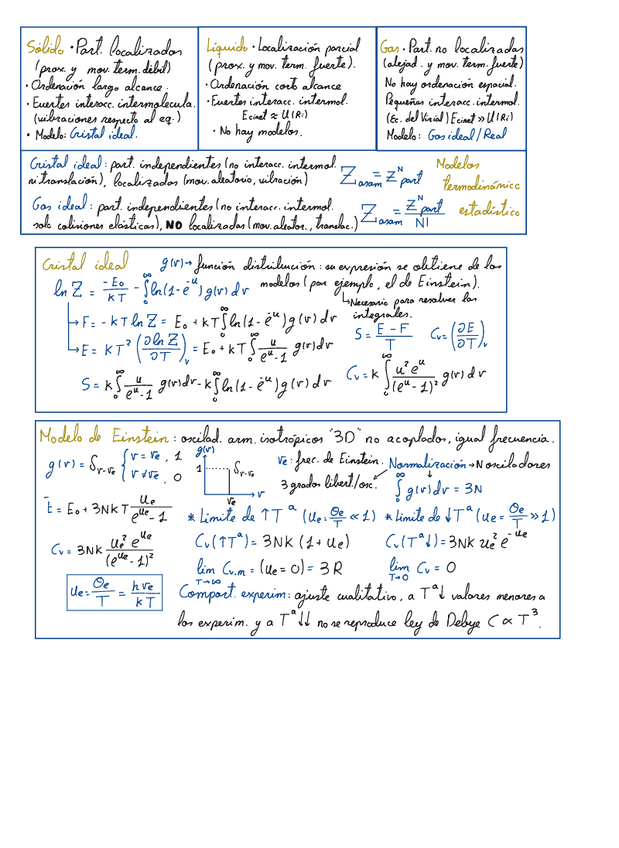 Sólido · Part. localizadas
(prox. y mov. term. débil)
· Ordenación largo alcance.
· Fuertes interacc. intermolecula.
(vibraciones respecto al eq.)
· Modelo: Cristal ideal.
Líquido · Localización parcial
(prox. y mov. term. fuerte).
· Ordenación corto alcance
· Fuertes interacc. intermol.
Ecinet ≈ U(Ri)
· No hay modelos.
Gas · Part. no localizadas
(alejad. y mov. term. fuerte)
No hay ordenación espacial.
Pequeñas interacc. intermol.
(Ec. del Virial) Ecinet >> U(Ri)
Modelo: Gas ideal / Real
Cristal ideal: part. independientes (no interacc. intermol.
ni translación), localizadas (mov. aleatorio, vibración)
Z asam = Z^N part
Gas ideal: part. independientes (no interacc. intermol.
solo colisiones elásticas), NO localizadas (mov. aleator., translac.)
Z asam = Z^N part / N!
Modelos
termodinámico
estadístico
Cristal ideal
g(ν) → función distribución: su expresión se obtiene de los
modelos (por ejemplo, el de Einstein).
↳ Necesario para resolver las
integrales.
ln Z = -E₀/kT - ∫₀^∞ ln(1-e^-u) g(ν) dν
↳ F = -kT ln Z = E₀ + kT ∫₀^∞ ln(1-e^-u) g(ν) dν
↳ E = kT² (∂ln Z/∂T)ᵥ = E₀ + kT ∫₀^∞ u/(e^u-1) g(ν) dν
S = (E-F)/T
Cᵥ = (∂E/∂T)ᵥ
S = k ∫₀^∞ u/(e^u-1) g(ν) dν - k ∫₀^∞ ln(1-e^-u) g(ν) dν
Cᵥ = k ∫₀^∞ u² e^u/(e^u-1)² g(ν) dν
Modelo de Einstein: oscilad. arm. isotrópicos "3D" no acoplados, igual frecuencia.
g(ν) = δν-νe { ν = νe, 1
ν ≠ νe, 0
g(ν)
1
δν-νe
νe
ν
νe: frec. de Einstein.
3 grados libert/osc.
Normalización → N osciladores
∫₀^∞ g(ν) dν = 3N
E = E₀ + 3NkT ue/(e^ue-1)
Cᵥ = 3Nk ue² e^ue/(e^ue-1)²
ue = Θe/T = hνe/kT
* Limite de ↑Tª (ue = Θe/T << 1)
Cᵥ(↑Tª) = 3Nk (1+ue)
lim T→∞ Cv,m = (ue = 0) = 3R
* Limite de ↓Tª (ue = Θe/T >> 1)
Cᵥ(Tª↓) = 3Nk ue² e^-ue
lim T→0 Cᵥ = 0
Comport. experim: ajuste cualitativo, a Tª↓ valores menores a
los experim. y a Tª↓↓ no se reproduce ley de Debye C ∝ T³.